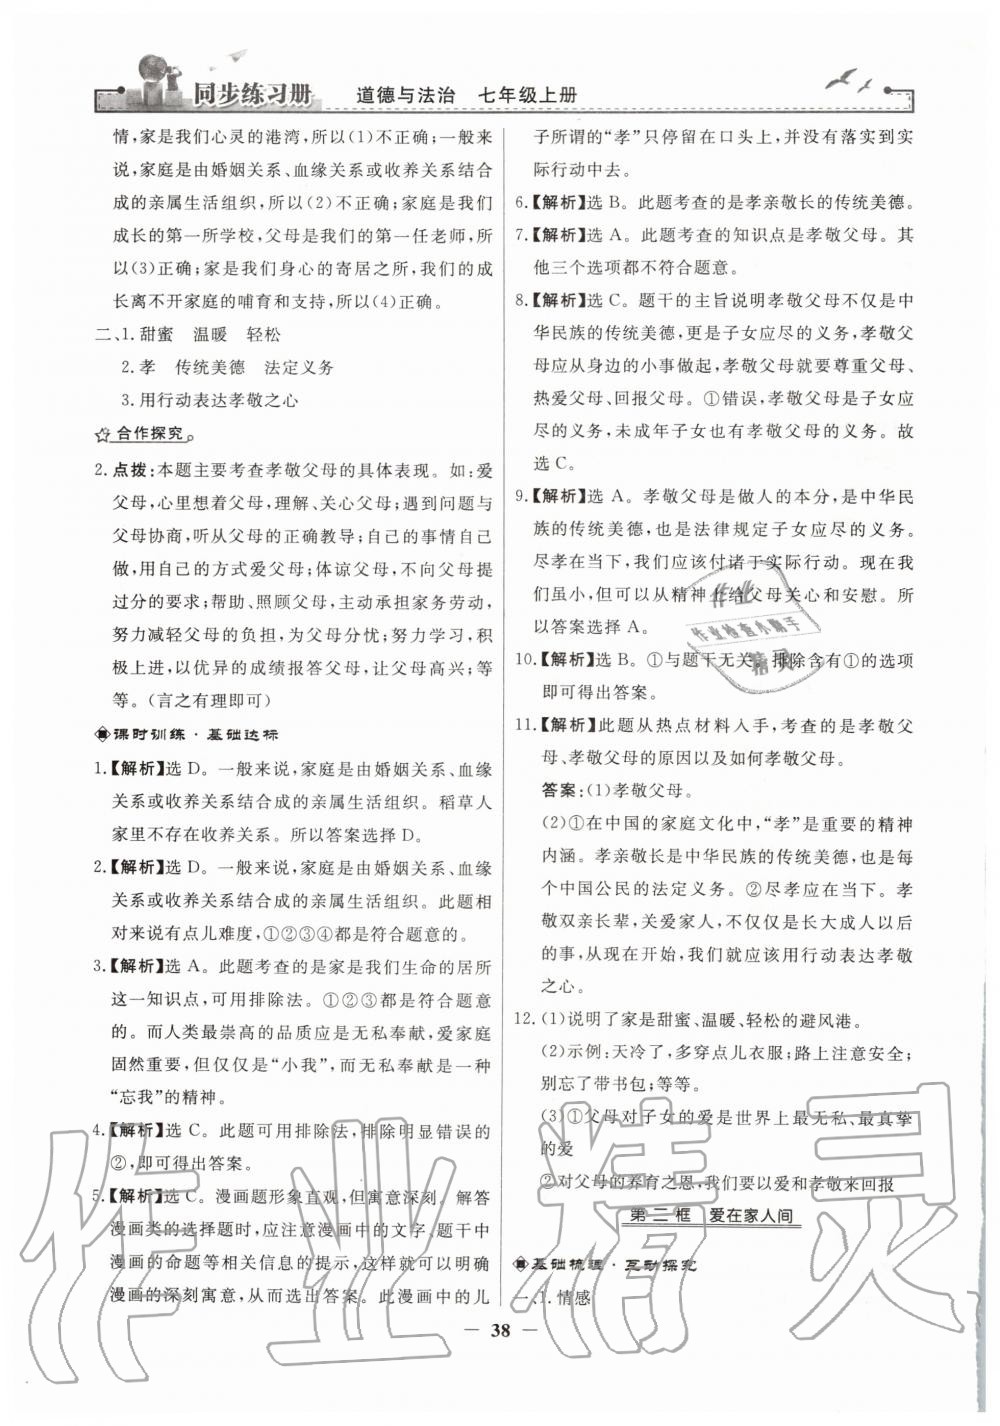 同步练习册 道德与法治 七年级上册
情,家是我们心灵的港湾,所以(1)不正确;一般来
说,家庭是由婚姻关系、血缘关系或收养关系结合
成的亲属生活组织,所以(2)不正确;家庭是我们
成长的第一所学校,父母是我们的第一任老师,所
以(3)正确;家是我们身心的寄居之所,我们的成
长离不开家庭的哺育和支持,所以(4)正确。
二、1.甜蜜 温暖 轻松
2.孝 传统美德 法定义务
3.用行动表达孝敬之心
合作探究
2.点拨:本题主要考查孝敬父母的具体表现。如:爱
父母,心里想着父母,理解、关心父母;遇到问题与
父母协商,听从父母的正确教导;自己的事情自己
做,用自己的方式爱父母;体谅父母,不向父母提
过分的要求;帮助、照顾父母,主动承担家务劳动,
努力减轻父母的负担,为父母分忧;努力学习,积
极上进,以优异的成绩报答父母,让父母高兴;等
等。(言之有理即可)
课时训练·基础达标
1.【解析】选 D。一般来说,家庭是由婚姻关系、血缘
关系或收养关系结合成的亲属生活组织。稻草人
家里不存在收养关系。所以答案选择 D。
2.【解析】选 D。一般来说,家庭是由婚姻关系、血缘
关系或收养关系结合成的亲属生活组织。此题相
对来说有点儿难度,①②③④都是符合题意的。
3.【解析】选 A。此题考查的是家是我们生命的居所
这一知识点,可用排除法。①②③都是符合题意
的。而人类最崇高的品质应是无私奉献,爱家庭
固然重要,但仅仅是“小我”,而无私奉献是一种
“忘我”的精神。
4.【解析】选 C。此题可用排除法,排除明显错误的
②,即可得出答案。
5.【解析】选 C。漫画题形象直观,但寓意深刻。解答
漫画类的选择题时,应注意漫画中的文字、题干中
漫画的命题等相关信息的提示,这样就可以明确
漫画的深刻寓意,从而选出答案。此漫画中的儿
子所谓的“孝”只停留在口头上,并没有落实到实
际行动中去。
6.【解析】选 B。此题考查的是孝亲敬长的传统美德。
7.【解析】选 A。此题考查的知识点是孝敬父母。其
他三个选项都不符合题意。
8.【解析】选 C。题干的主旨说明孝敬父母不仅是中
华民族的传统美德,更是子女应尽的义务,孝敬父
母应从身边的小事做起,孝敬父母就要尊重父母、
热爱父母、回报父母。①错误,孝敬父母是子女应
尽的义务,未成年子女也有孝敬父母的义务。故
选 C。
9.【解析】选 A。孝敬父母是做人的本分,是中华民
族的传统美德,也是法律规定子女应尽的义务。
尽孝在当下,我们应该付诸于实际行动。现在,我
们虽小,但可以从精神上给父母关心和安慰。所
以答案选择 A。
10.【解析】选 B。①与题干无关。排除含有①的选项
即可得出答案。
11.【解析】此题从热点材料入手,考查的是孝敬父
母、孝敬父母的原因以及如何孝敬父母。
答案:(1)孝敬父母。
(2)①在中国的家庭文化中,“孝”是重要的精神
内涵。孝亲敬长是中华民族的传统美德,也是每
个中国公民的法定义务。②尽孝应在当下。孝
敬双亲长辈,关爱家人,不仅仅是长大成人以后
的事,从现在开始,我们就应该用行动表达孝敬
之心。
12.(1)说明了家是甜蜜、温暖、轻松的避风港。
(2)示例:天冷了,多穿点儿衣服;路上注意安全;
别忘了带书包;等等。
(3)①父母对子女的爱是世界上最无私、最真挚
的爱
②对父母的养育之恩,我们要以爱和孝敬来回报
第二框 爱在家人间
基础梳理·互动探究
一、1.情感
— 38 —
作业
作业检查小助手
精灵
作业精灵